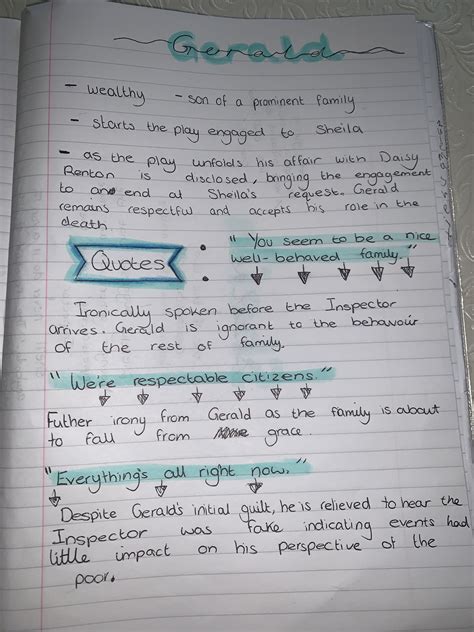 Gerald
- wealthy - son of a prominent family
- starts the play engaged to Sheila
- as the play unfolds his affair with Daisy
Renton is disclosed, bringing the engagement
to an end at Sheila's request. Gerald
remains respectful and accepts his role in the
death.
Quotes :
"You seem to be a nice
well-behaved family."
Ironically spoken before the Inspector
arrives. Gerald is ignorant to the behavour
of the rest of family.
"We're respectable citizens"
Futher irony from Gerald as the family is about
to fall from grace.
"Everything's all right now."
Despite Gerald's initial guilt, he is relieved to hear the
Inspector was fake indicating events had
little impact on his perspective of the
poor.